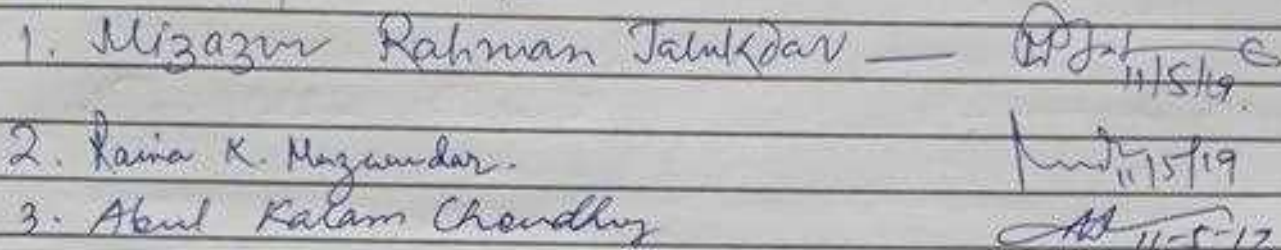 1. Mizazur Rahman Talukdar — 11/5/19.
2. Raina K. Mazumdar. 11/5/19
3. Abul Kalam Choudhury 11-5-19